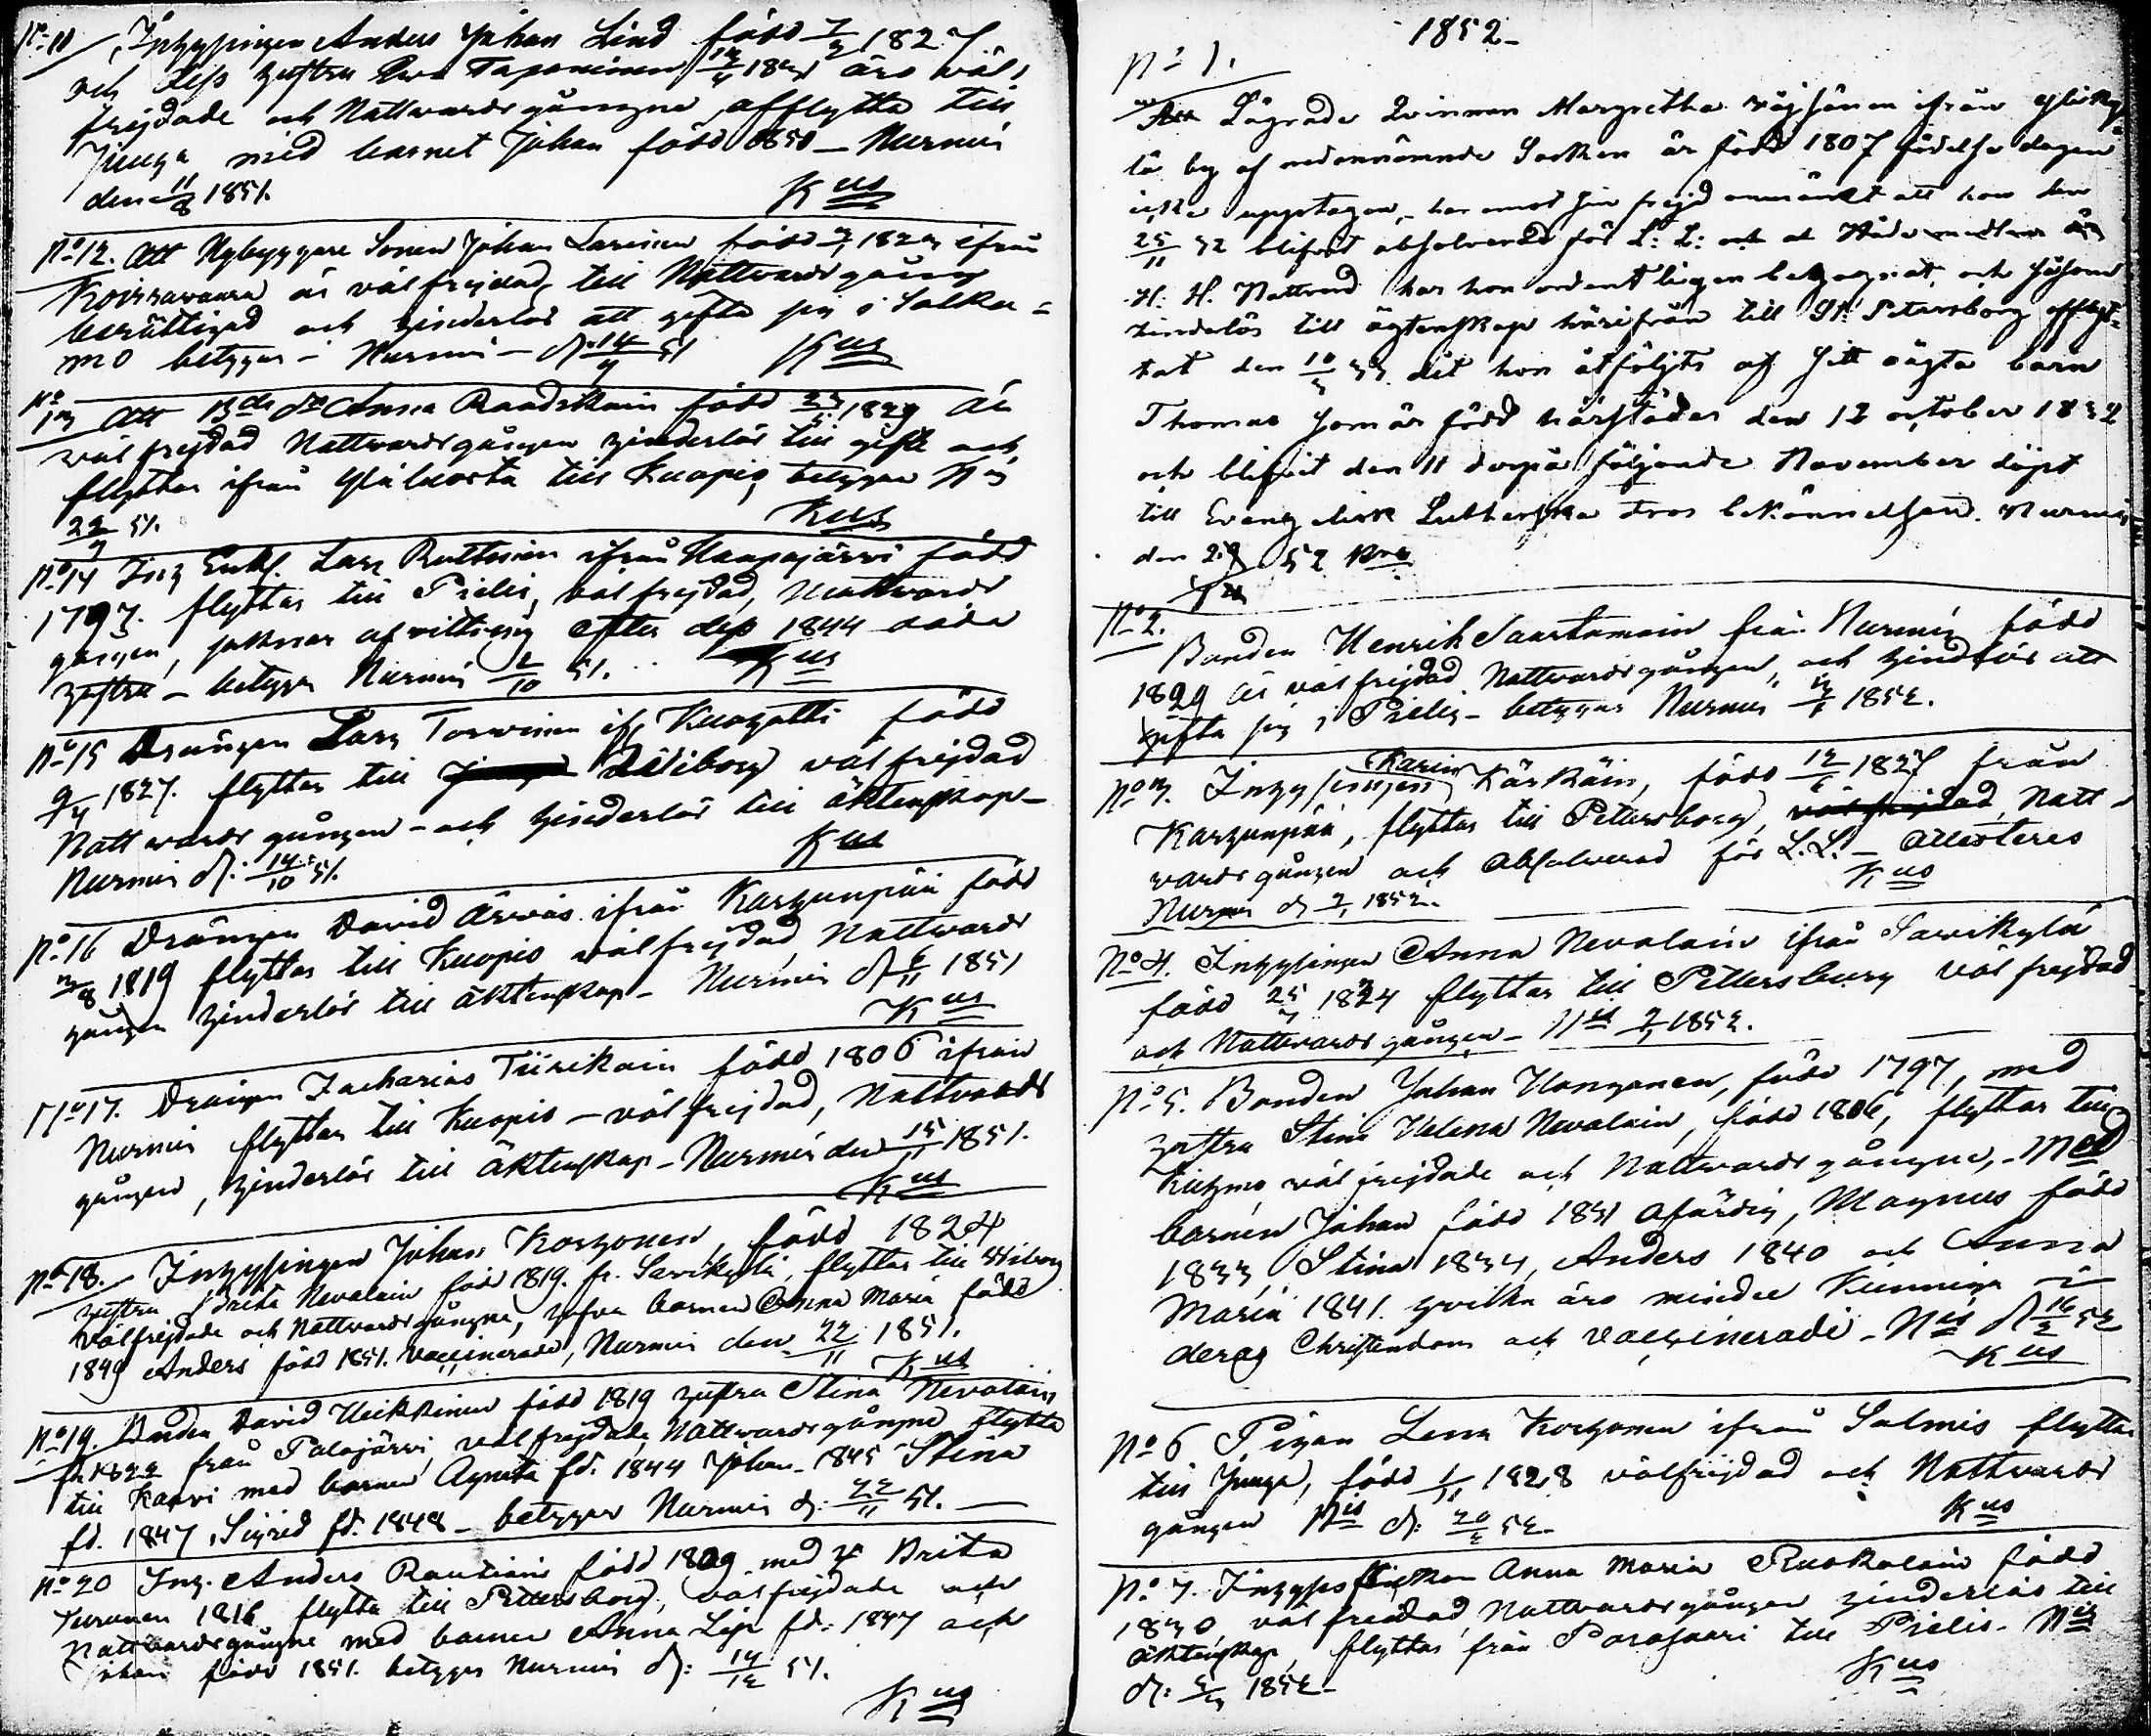 No 11 Inhysingen Anders Johan Lind född 7/2 1827
och dess hustru Eva Taponinen 13/4 18 äro väl
frejdade och Nattvardsgångne, afflytta till
Juuga med barnet Johan född 1850 – Nurmis
den 11/8 1851. Kus
No 12. Att Nybyggare Sonen Johan Larinen född 182 ifrån
Koirravaara är välfrejdad, till Nattvardsgång
berättigad och hinderlös att gifta sig i Sotka-
mo betygar – Nurmis – d. 14/9 51 Kus
No 13 Att Bde dr Anna Raadikain född 1829 är
välfrejdad Nattvardsgången hinderlös till gifte och
flyttar ifrån till Kuopio, betygar Nis
22/9 51. Kus
No 14 Inh Enkl. Lars Ruttinen ifrån Haapajärvi född
1797. flyttar till Pielis, välfrejdad, Nattvards
gången, saknar afvittring efter dess 1844 döda
hustru – betygar Nurmis 2/10 51. Kus
No 15 Drängen Lars Torvinen if. Kuogatti född
9/4 1827. flyttar till Wiborg välfrejdad
Nattvardsgången – och hinderlös till äktenskap –
Nurmis d: 14/10 51. Kus
No 16 Drängen David Ärväs ifrån Karhunpää född
3/8 1819 flyttar till Kuopio välfrejdad, Nattvards
gången hinderlös till äktenskap – Nurmis d 6/11 1851
Kus
No 17. Drängen Zacharias Tiirikain född 1806 ifrån
Nurmis flyttar till Kuopio – välfrejdad, Nattvards
gången, hinderlös till äktenskap – Nurmis den 15/11 1851.
Kus
No 18. Inhysingen Johan Korhonen, född 1824
hustru Brita Nevalain född 1819. fr. Savikylä, flyttar till Wiborg
välfrejdade och Nattvardsgångne, hafva barnen Anna Maria född
1849 Anders född 1851. vaccinerade, Nurmis den 22/11 1851.
Kus
No 19. Bonden David Heikkinen född 1819 hustru Stina Nevalain
fd 1822 från Palojärvi, välfrejdade, Nattvardsgångne flytta
till Kaavi med barnen Agneta fd. 1844 Johan – 1845 Stina
fd. 1847, Sigrid fd. 1848 – betygar Nurmis d: 22/11 51. –
No 20 Inh. Anders Rautiain född 1809 med h Brita
Turunen 1816 flytta till Pettersborg, välfrejdade och
Nattvardsgångne med barnen Anna Lisa fd: 1847 och
Johan född 1851. betygar Nurmis d: 14/12 51.
Kus
1852 –
No 1.
Lägrade Qvinnan Margretha ifrån
lä by af nedannämnde Socken är född 1807 födelse dagen
icke upptagen, – har emot sin frejd anmärkt att hon den
25/11 32 blifvit absolverad för L: L: och
H. H. Nattvard har hon ordentligen begagnat, och såsom
hinderlös till ägtenskap härifrån till St. Petersborg afflyt-
tat den 10/3 33. dit hon åtföljts af sitt oägta barn
Thomas som är född härstädes den 12 october 1832
och blifvit den 11 derpå följande November döpt
till Evangelisk Lutherska tros bekännelsen. Nurmis
den 52
No 2.
Bonden Henrik Saastamoin från Nurmis född
1829 är välfrejdad Nattvardsgången, och hinderlös att
gifta sig i Pielis – betygar Nurmis 1852.
No 3. Inhysingen Karin Kärkäin, född 12/6 1827 från
Karhunpää, flyttar till Petersborg, välfrejdad, Natt-
vardsgången och absolverad för L. L. – attesteres
Nurmis d 2/1 1852. Kus
No 4. Inhysingen Anna Nevalain ifrån Savikylä
född 25/ 1824 flyttar till Pettersburg välfrejdad
och Nattvardsgången – Nis 2/1 1852.
No 5. Bonden Johan Honganen, född 1797, med
hustru Stina Helena Nevalain, född 1806, flyttar till
Kuhmo välfrejdade och Nattvardsgångne, – Med
barnen Johan född 1831 ofärdig, Magnus född
1833, Stina 1834, Anders 1840 och Anna
Maria 1841. hvilka äro mindre kunniga i
deras Christendom och Vaccinerade – Nis d 16/2 52
Kus
No 6 Pigan Lena Korhonen ifrån Salmis flyttar
till Juuga, född 1/11 1828 välfrejdad och Nattvards
gången Nis d: 20/2 52 – Kus
No 7. Inhyses flickan Anna Maria Ruokolain född
1830, välfrejdad, Nattvardsgången hinderlös till
äktenskap, flyttar från Porosaari till Pielis – Nis
d: 5/3 1852 – Kus